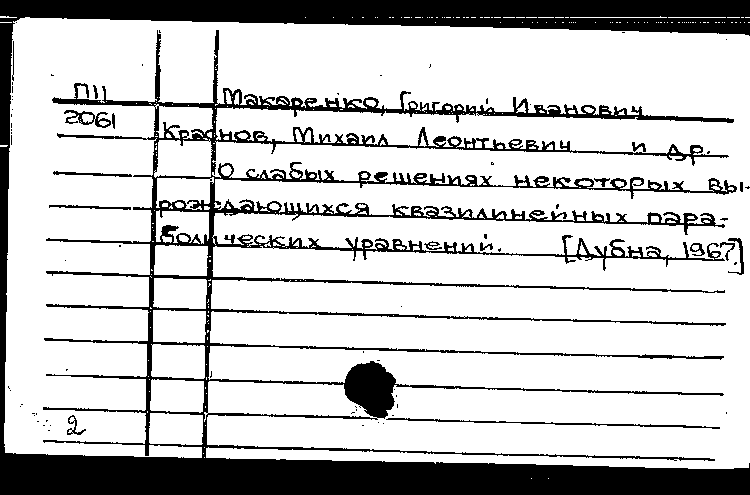 П11 Макаренко, Григорий Иванович
2061 Краснов, Михаил Леонтьевич и др.
О слабых решениях некоторых вы-
рождающихся квазилинейных пара-
болических уравнений. [Дубна, 1967.]
2